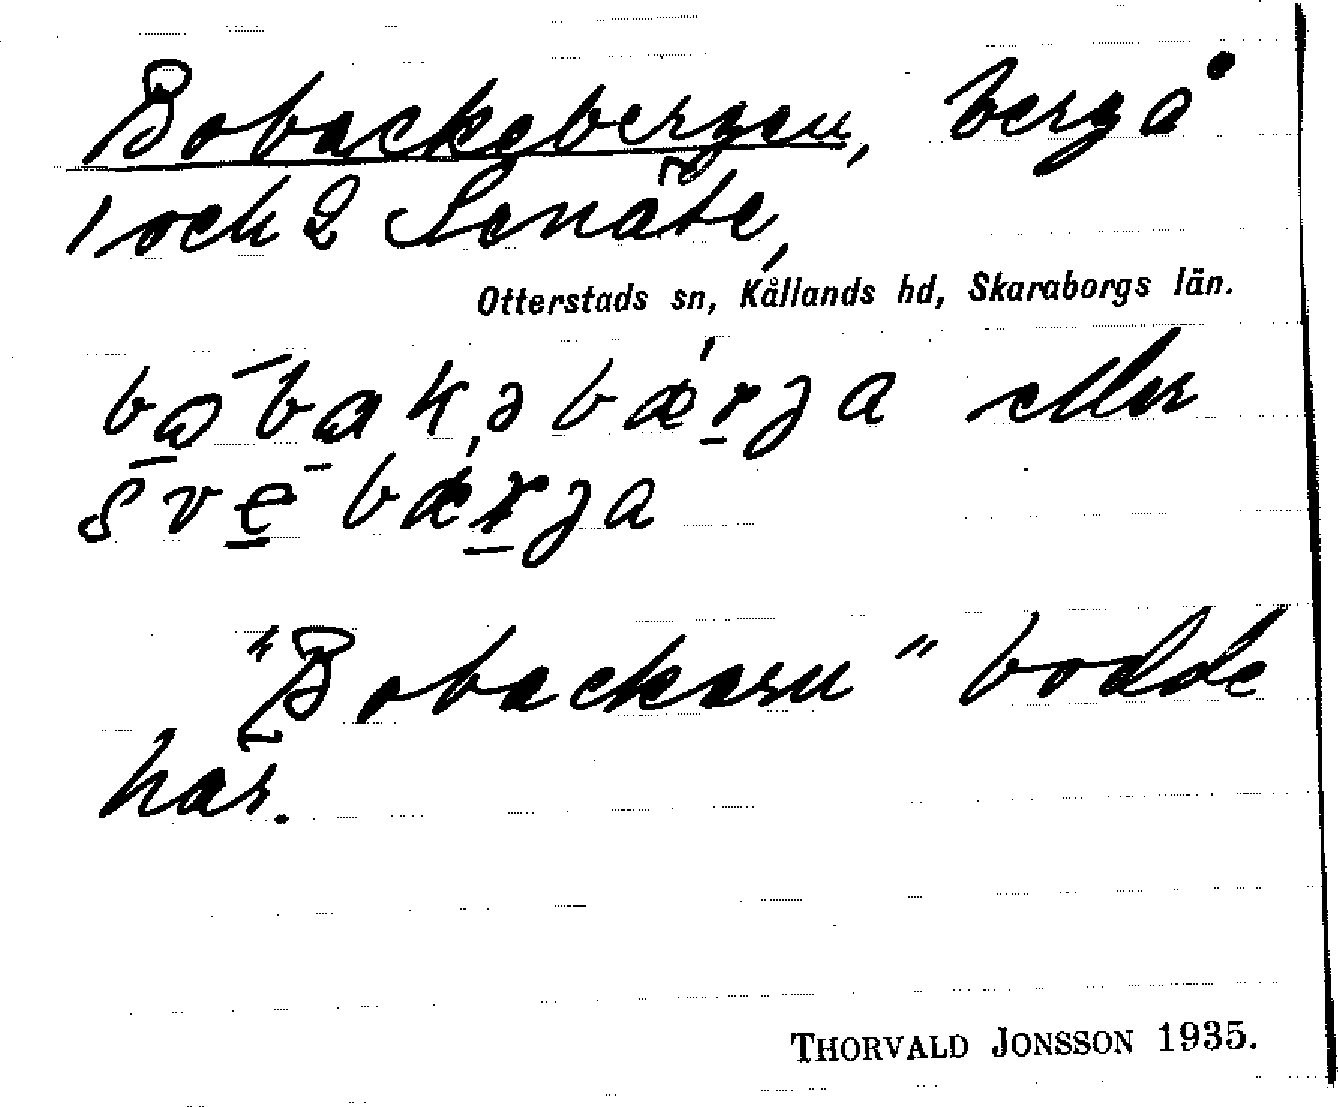 Bobackebergen, berg å
1 och 2 Senäte,
Otterstads sn, Kållands hd, Skaraborgs län.
bωbakəbærja eller
svebærja
"Bobackarn" bodde
här.
THORVALD JONSSON 1935.